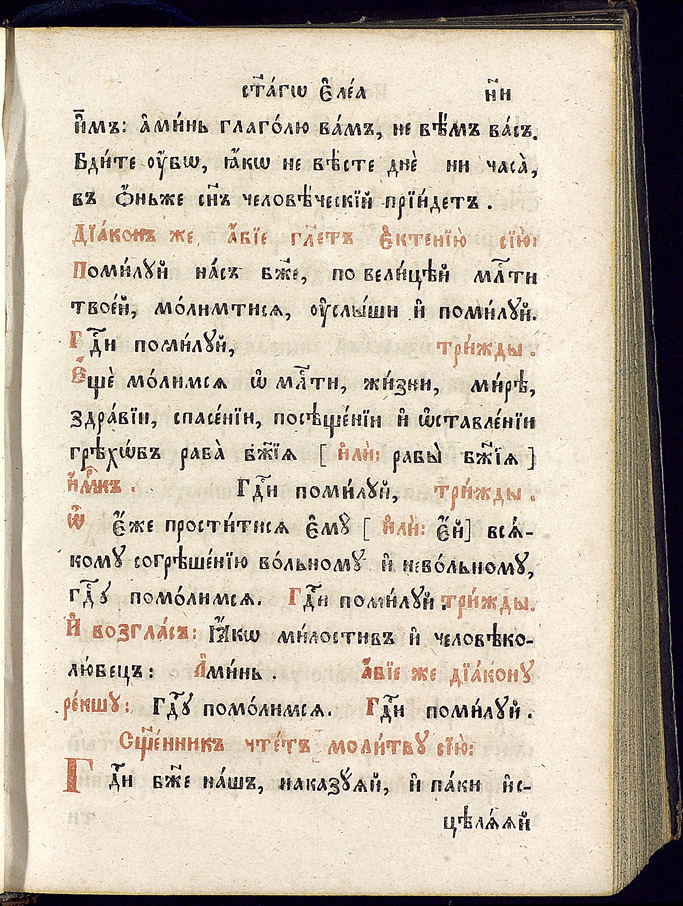 ст҃а́гѡ є҆ле́а н҃и
и҆̀мъ: а҆ми́нь глаго́лю ва́мъ, не вѣ́мъ ва́съ.
Бди́те ᲂу҆̀бѡ, ꙗ҆́кѡ не вѣ́сте днѐ ни часа̀,
въ ѻ҆́ньже сн҃ъ человѣ́ческїй прїи́детъ.
Дїа́конъ же а҆́бїе гл҃етъ є҆ктенїю̀ сїю̀:
Поми́лꙋй на́съ бж҃е, по вели́цѣй мл҃ти
твое́й, мо́лимтися, ᲂу҆слы́ши и҆ поми́лꙋй.
Гдⷭ҇и поми́лꙋй, три́жды.
Є҆щѐ мо́лимся ѡ҆ мл҃ти, жи́зни, ми́рѣ,
здра́вїи, спасе́нїи, посѣще́нїи и҆ ѡ҆ставле́нїи
грѣхѡ́въ раба̀ бж҃їя [ и҆лѝ: рабы̀ бж҃їя ]
и҆́м҃къ. Гдⷭ҇и поми́лꙋй, три́жды.
Ѡ҆ є҆́же прости́тися є҆мꙋ̀ [ и҆лѝ: є҆́й] вся́-
комꙋ согрѣше́нїю во́льномꙋ и҆ нево́льномꙋ,
гдⷭ҇ꙋ помо́лимся. Гдⷭ҇и поми́лꙋй. три́жды.
И҆ во́згласъ: Ꙗ҆́кѡ ми́лостивъ и҆ человѣко-
лю́бецъ: А҆ми́нь. а҆́бїе же дїа́конꙋ
ре́кшꙋ: Гдⷭ҇ꙋ помо́лимся. Гдⷭ҇и поми́лꙋй.
Сщ҃е́нникъ чте́тъ моли́твꙋ сїю̀:
Гдⷭ҇и бж҃е на́шъ, наказꙋ́яй, и҆ па́ки и҆с-
цѣля́яй